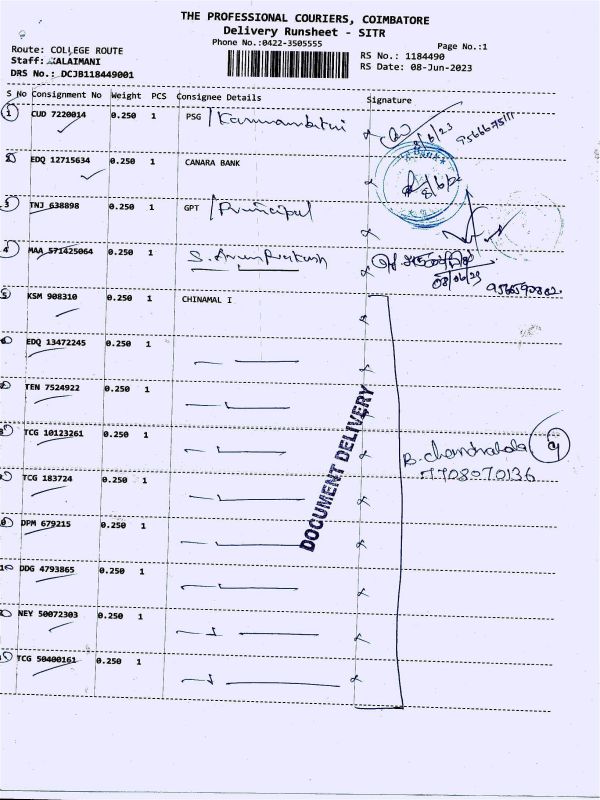 THE PROFESSIONAL COURIERS, COIMBATORE
Delivery Runsheet - SITR
Phone No.:0422-3505555
Page No.:1
Route: COLLEGE ROUTE
Staff: KALAIMANI
DRS No.: DCJB118449001
RS No.: 1184490
RS Date: 08-Jun-2023
S No Consignment No Weight PCS Consignee Details Signature
1 CUD 7220014 0.250 1 PSG /
9566675111
2 EDQ 12715634 0.250 1 CANARA BANK
3 TNJ 638898 0.250 1 GPT / Principal
4 MAA 571425064 0.250 1 S. Arun Prakash
08/06/23
5 KSM 908310 0.250 1 CHINAMAL I
6 EDQ 13472245 0.250 1
TEN 7524922 0.250 1
TCG 10123261 0.250 1
B. Chandrakala 9
7708070136
TCG 183724 0.250 1
DPM 679215 0.250 1
DDG 4793865 0.250 1
NEY 50072303 0.250 1
TCG 50400161 0.250 1
DOCUMENT DELIVERY